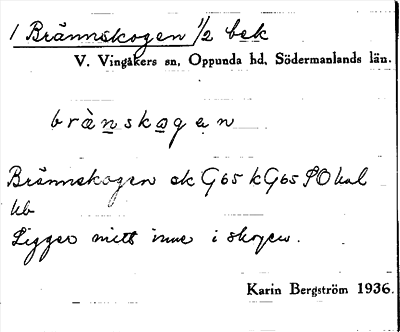 1 Brännskogen 1/2 bek
V. Vingåkers sn, Oppunda hd, Södermanlands län.
brànskogen
Brännskogen ek G65 kG65 SO kal
kb
Ligger mitt inne i skogen.
Karin Bergström 1936.